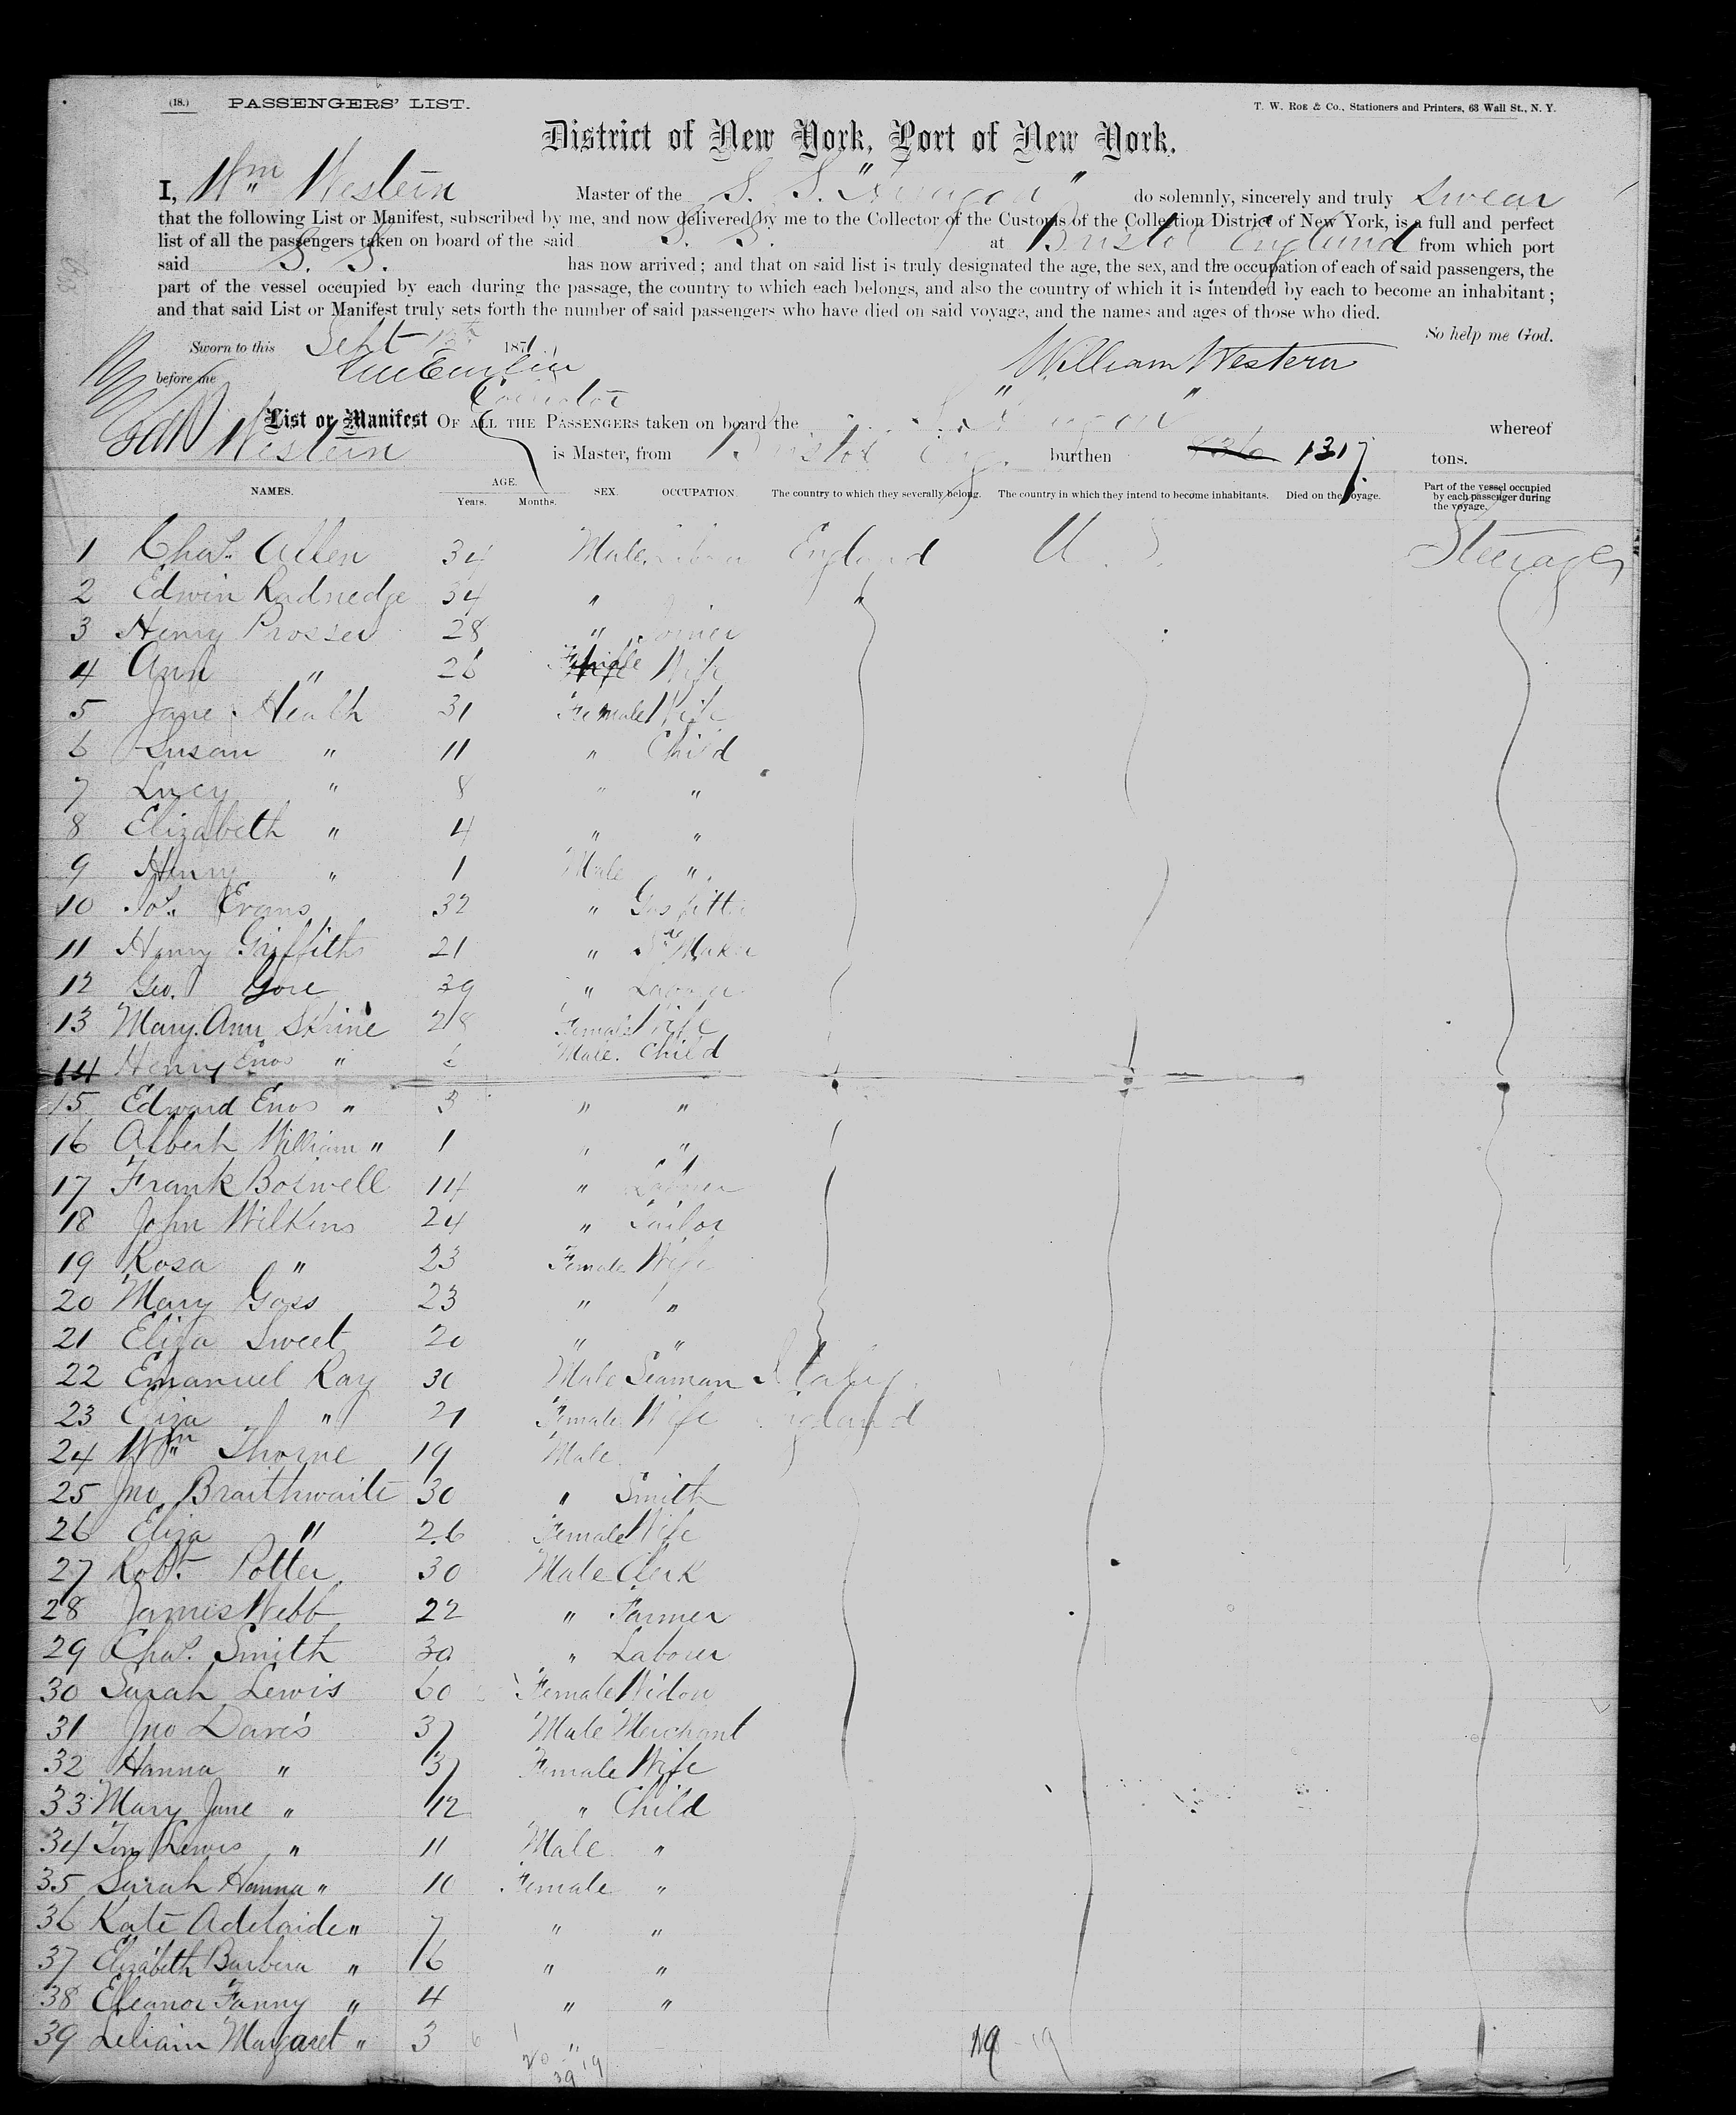 (18.) PASSENGERS' LIST. T. W. Roe & Co., Stationers and Printers, 63 Wall St., N. Y.
District of New York, Port of New York.
I, Wm Western Master of the S. S. do solemnly, sincerely and truly swear
that the following List or Manifest, subscribed by me, and now delivered by me to the Collector of the Customs of the Collection District of New York, is a full and perfect
list of all the passengers taken on board of the said S. S. at Bristol England from which port
said S. S. has now arrived; and that on said list is truly designated the age, the sex, and the occupation of each of said passengers, the
part of the vessel occupied by each during the passage, the country to which each belongs, and also the country of which it is intended by each to become an inhabitant;
and that said List or Manifest truly sets forth the number of said passengers who have died on said voyage, and the names and ages of those who died.
So help me God.
Sworn to this Sept 1871
before me William Western
List or Manifest OF ALL THE PASSENGERS taken on board the whereof
Western is Master, from Bristol Eng. burthen 1317 tons.
NAMES. AGE. Years. Months. SEX. OCCUPATION. The country to which they severally belong. The country in which they intend to become inhabitants. Died on the voyage. Part of the vessel occupied by each passenger during the voyage.
1 Chas. Allen 34 Male England U. S. Steerage
2 Edwin Radnedge 34 " "
3 Henry Prosser 28 " Joiner
4 Ann " 26 Female Wife
5 Jane Heath 31 Female Wife
6 Susan " 11 " Child
7 Lucy " 8 " "
8 Elizabeth " 4 " "
9 Henry " 1 Male "
10 Evans 32 " Gasfitter
11 Henry Griffiths 21 " Maker
12 Geo. Gore 39 " Laborer
13 Mary Ann Skrine 28 Female Wife
14 Henry Enos " Male. Child
15 Edward Enos " 3 " "
16 Albert William " 1 " "
17 Frank Boswell 14 " Laborer
18 John Wilkins 24 " Tailor
19 Rosa " 23 Female Wife
20 Mary Goss 23 " "
21 Eliza Sweet 20 " "
22 Emanuel Ray 30 Male Seaman Italy
23 Eliza " 21 Female Wife England
24 Wm Thorne 19 Male
25 Jno Braithwaite 30 " Smith
26 Eliza " 26 Female Wife
27 Robt. Potter 30 Male Clerk
28 James Webb 22 " Farmer
29 Chas. Smith 30 " Laborer
30 Sarah Lewis 60 Female Widow
31 Jno Davis 37 Male Merchant
32 Hanna " 37 Female Wife
33 Mary Jane " 12 " Child
34 Lewis " 11 Male "
35 Sarah Hanna " 10 Female "
36 Kate Adelaide " 7 " "
37 Elizabeth Barbera " 6 " "
38 Eleanor Fanny " 4 " "
39 Leliain Margaret " 3 "
20 19 19 - 19
39